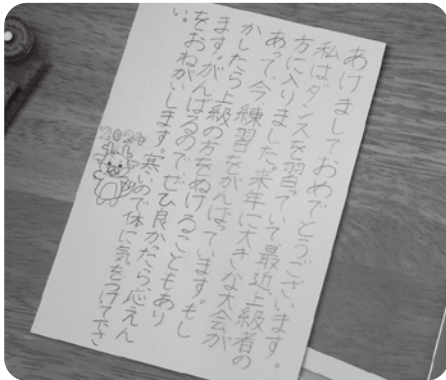 あけましておめでとうございます。
私はダンスを習っていて最近上級者の
方に入りました。来年に大きな大会が
あって、今練習をがんばっています。もし
かしたら上級の方をぬけることもあり
ます。がんばるのでぜひ良かったら、応えん
をおねがいします。寒いので体に気をつけて下さ
い。
2024